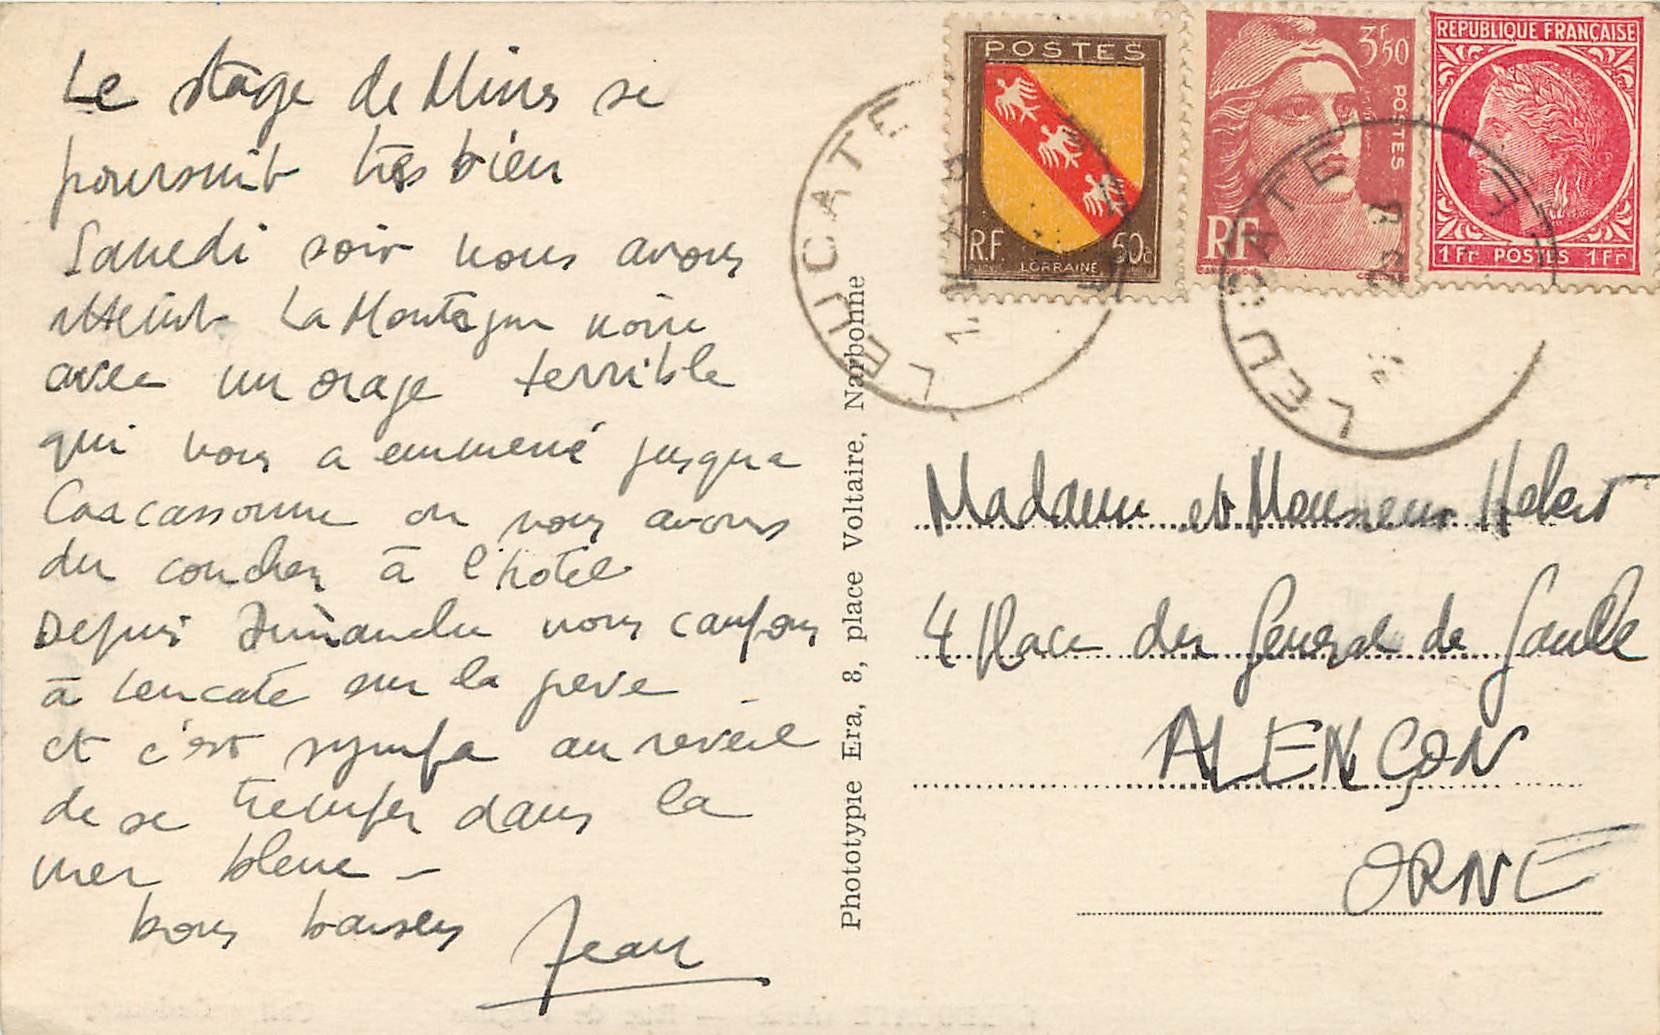 Le stage de Mines se
poursuit très bien
Samedi soir nous avons
atteint La Montagne noire
avec un orage terrible
qui nous a emmené jusqu'a
Carcassonne ou nous avons
du coucher à l'hotel
Depuis Dimanche nous campons
à Leucate sur la greve
et c'est sympa au reveil
de se tremper dans la
mer bleue —
bons baisers
Jean
Phototypie Era, 8, place Voltaire, Narbonne
POSTES
R.F. 50c
LORRAINE
3F50
POSTES
RF
REPUBLIQUE FRANÇAISE
1Fr POSTES 1Fr
LEUCATE
LEUCATE
Madame et Monsieur Hebert
4 Place du General de Gaulle
ALENÇON
ORNE